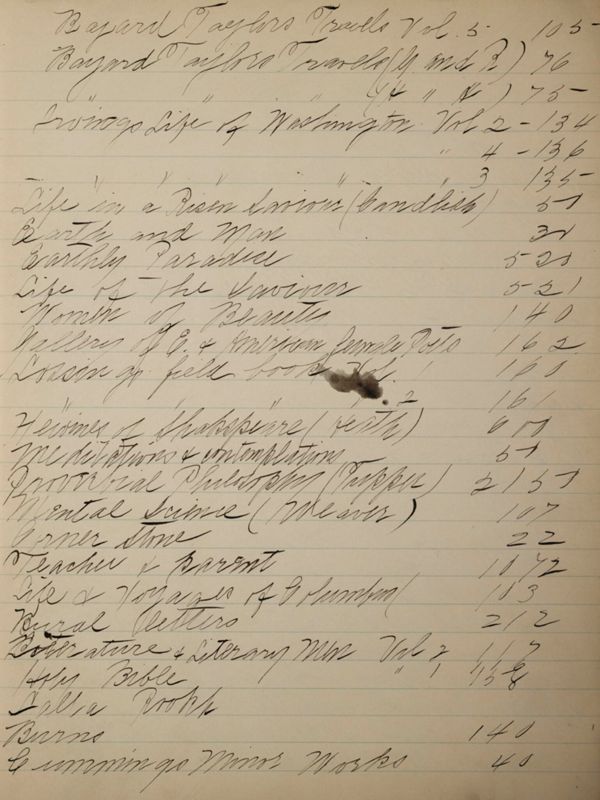 Bayard Taylors Travels Vol. 5 105
Bayard Taylors Travels (G. and R) 76
" " ( " " ) 75
Irvings Life of Washington Vol 2 - 134
" 4 - 136
" " " " " 3 135
Life in a Risen Saviour (Candlish) 50
Earth and Man 30
Earthly Paradise 520
Life of the Saviour 521
Women of Beauty 140
Gallery of E. & American Female Poets 162
Lossings field book Vol. 1 160
" " " 2 161
Heroines of Shakspeare (Heath) 600
Meditations & contemplations 50
Proverbial Philosophy (Tupper) 2150
Mental Science (Weaver) 107
Corner Stone 22
Teacher & Parent 1072
Life & Voyages of Columbus 103
Rural Letters 212
Literature & Literary Men Vol 2 117
Holy Bible " 1 158
Lalla Rookh
Burns 140
Cummings Minor Works 40